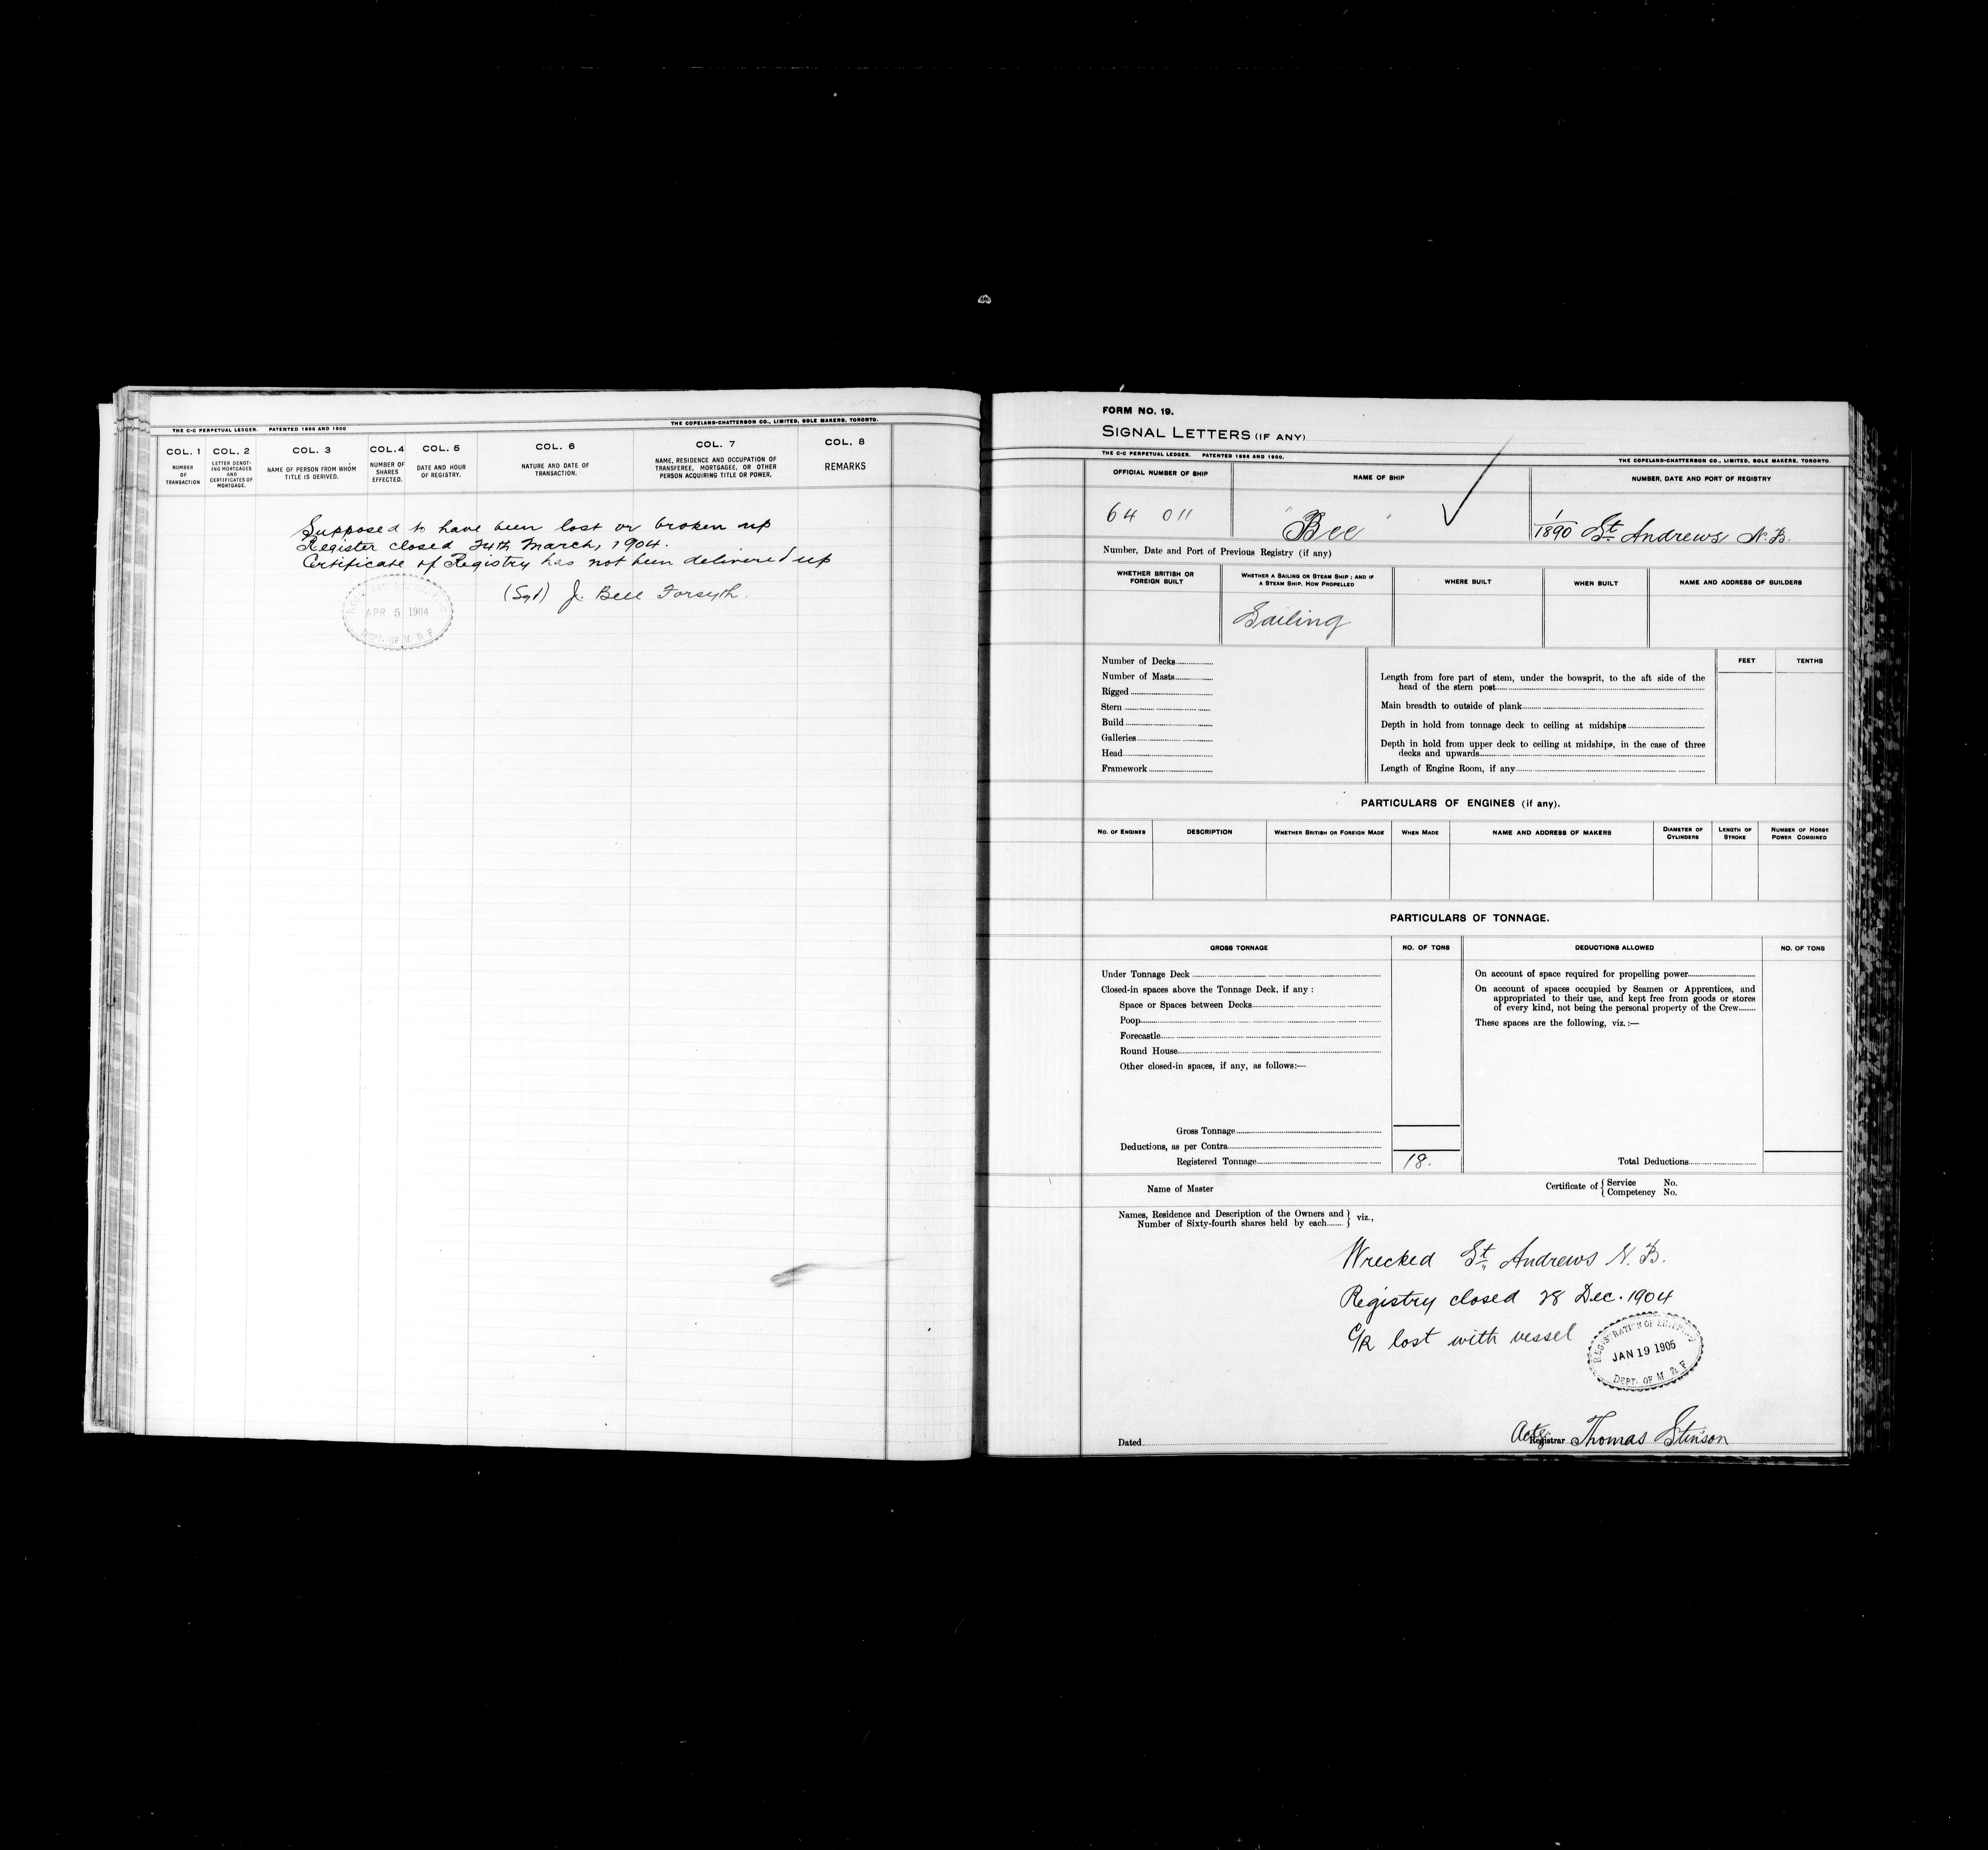 THE C-C PERPETUAL LEDGER. PATENTED 1896 AND 1900
THE COPELAND-CHATTERSON CO., LIMITED, SOLE MAKERS, TORONTO.
COL. 1
NUMBER
OF
TRANSACTION
COL. 2
LETTER DENOT-
ING MORTGAGES
AND
CERTIFICATES OF
MORTGAGE.
COL. 3
NAME OF PERSON FROM WHOM
TITLE IS DERIVED.
COL. 4
NUMBER OF
SHARES
EFFECTED.
COL. 5
DATE AND HOUR
OF REGISTRY.
COL. 6
NATURE AND DATE OF
TRANSACTION.
COL. 7
NAME, RESIDENCE AND OCCUPATION OF
TRANSFEREE, MORTGAGEE, OR OTHER
PERSON ACQUIRING TITLE OR POWER.
COL. 8
REMARKS
Supposed to have been lost or broken up
Register closed 24th March, 1904.
Certificate of Registry has not been delivered up
(Sgd) J. Bell Forsyth.
APR 5 1904
DEPT. OF M. & F
FORM NO. 19.
SIGNAL LETTERS (IF ANY)
THE C-C PERPETUAL LEDGER. PATENTED 1896 AND 1900.
THE COPELAND-CHATTERSON CO., LIMITED, SOLE MAKERS, TORONTO.
OFFICIAL NUMBER OF SHIP
NAME OF SHIP
NUMBER, DATE AND PORT OF REGISTRY
64 011
"Bee"
1/1890 St. Andrews N.B.
Number, Date and Port of Previous Registry (if any)
WHETHER BRITISH OR
FOREIGN BUILT
WHETHER A SAILING OR STEAM SHIP; AND IF
A STEAM SHIP, HOW PROPELLED
WHERE BUILT
WHEN BUILT
NAME AND ADDRESS OF BUILDERS
Sailing
Number of Decks
Number of Masts
Rigged
Stern
Build
Galleries
Head
Framework
FEET
TENTHS
Length from fore part of stem, under the bowsprit, to the aft side of the
head of the stern post
Main breadth to outside of plank
Depth in hold from tonnage deck to ceiling at midships
Depth in hold from upper deck to ceiling at midships, in the case of three
decks and upwards
Length of Engine Room, if any
PARTICULARS OF ENGINES (if any).
NO. OF ENGINES
DESCRIPTION
WHETHER BRITISH OR FOREIGN MADE
WHEN MADE
NAME AND ADDRESS OF MAKERS
DIAMETER OF
CYLINDERS
LENGTH OF
STROKE
NUMBER OF HORSE
POWER COMBINED
PARTICULARS OF TONNAGE.
GROSS TONNAGE
NO. OF TONS
DEDUCTIONS ALLOWED
NO. OF TONS
Under Tonnage Deck
Closed-in spaces above the Tonnage Deck, if any :
Space or Spaces between Decks
Poop
Forecastle
Round House
Other closed-in spaces, if any, as follows:—
Gross Tonnage
Deductions, as per Contra
Registered Tonnage
18.
On account of space required for propelling power
On account of spaces occupied by Seamen or Apprentices, and
appropriated to their use, and kept free from goods or stores
of every kind, not being the personal property of the Crew
These spaces are the following, viz.:—
Total Deductions
Name of Master
Certificate of { Service No.
Competency No.
Names, Residence and Description of the Owners and
Number of Sixty-fourth shares held by each } viz.,
Wrecked St. Andrews N.B.
Registry closed 28 Dec. 1904
C/R lost with vessel
REGISTRATION OF SHIPPING
JAN 19 1905
DEPT. OF M & F
Dated
Actg Registrar Thomas Stinson